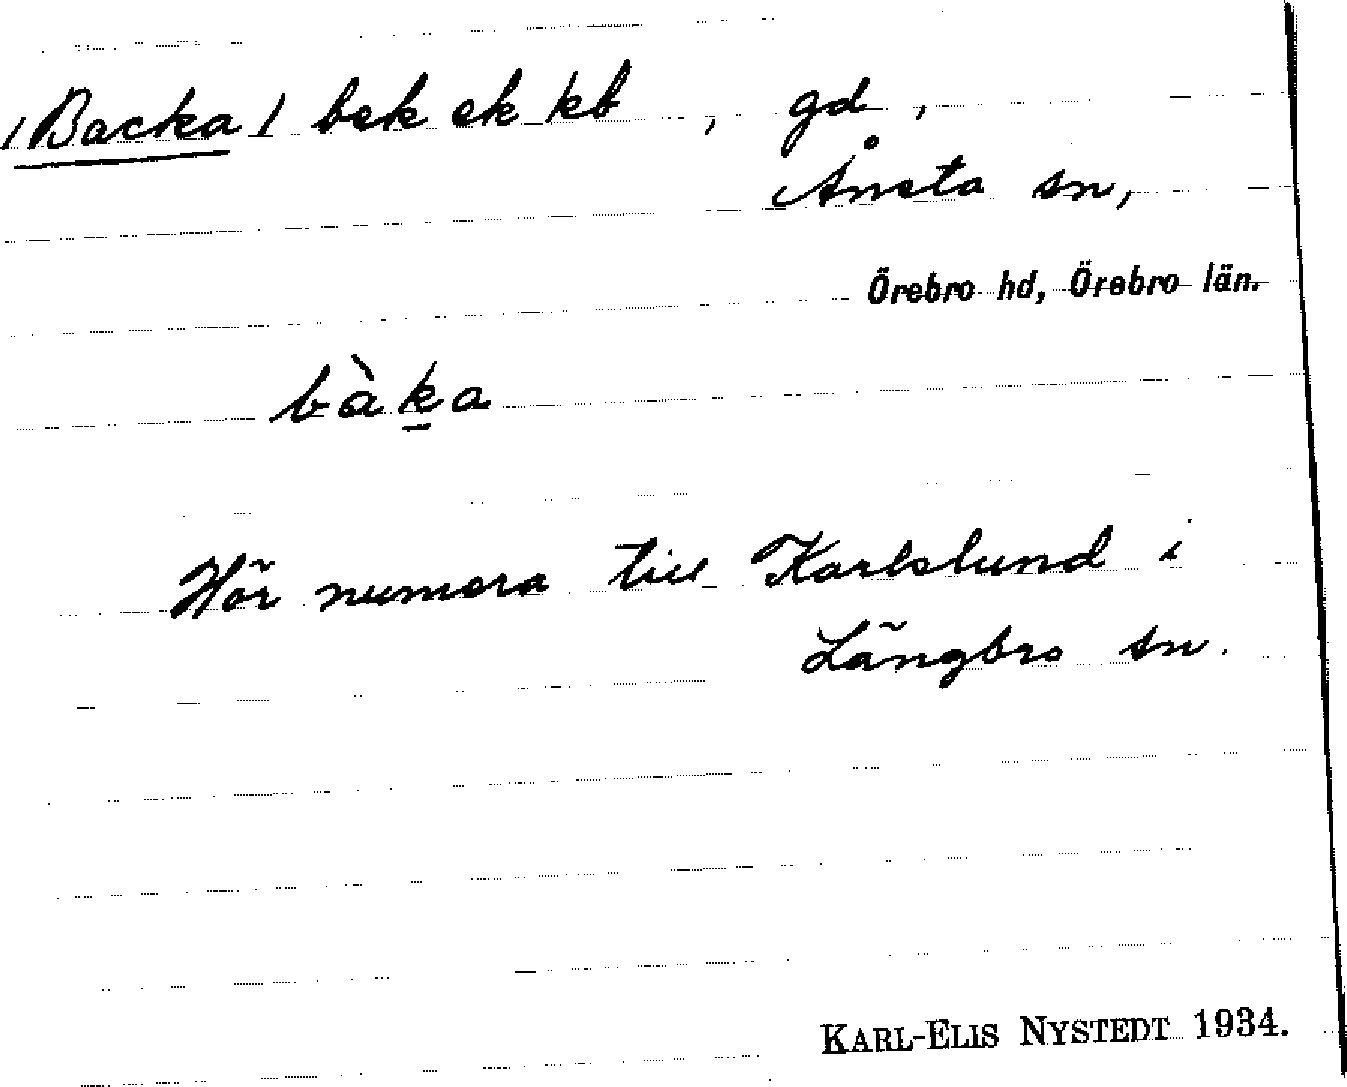 /Backa/ bek ek kb, gd,
Ånsta sn,
Örebro hd, Örebro län.
bàka
Hör numera till Karlslund i
Längbro sn.
KARL-ELIS NYSTEDT 1934.